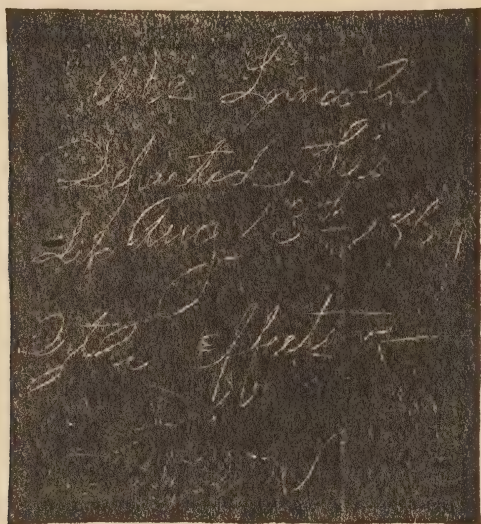 Abe Lincoln
Departed this
Life Aug 13th 1864
By the effects of